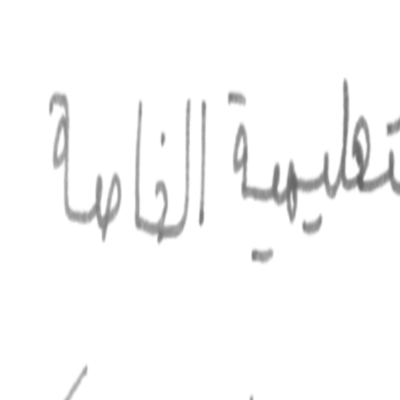 تعليمية الخاصة